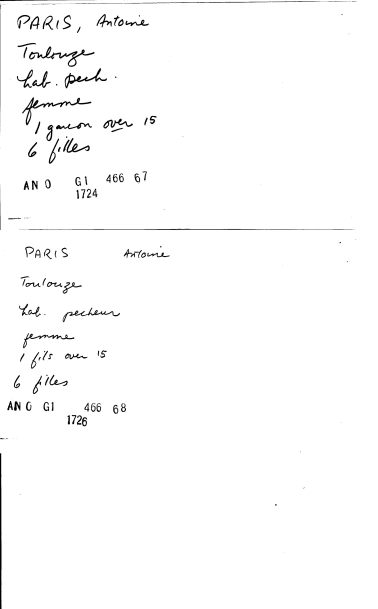 PARIS, Antoine
Toulouze
hab. pech.
femme
1 garcon over 15
6 filles
AN O G1 466 67
1724
PARIS Antoine
Toulouze
hab. pecheur
femme
1 fils over 15
6 filles
AN O G1 466 68
1726